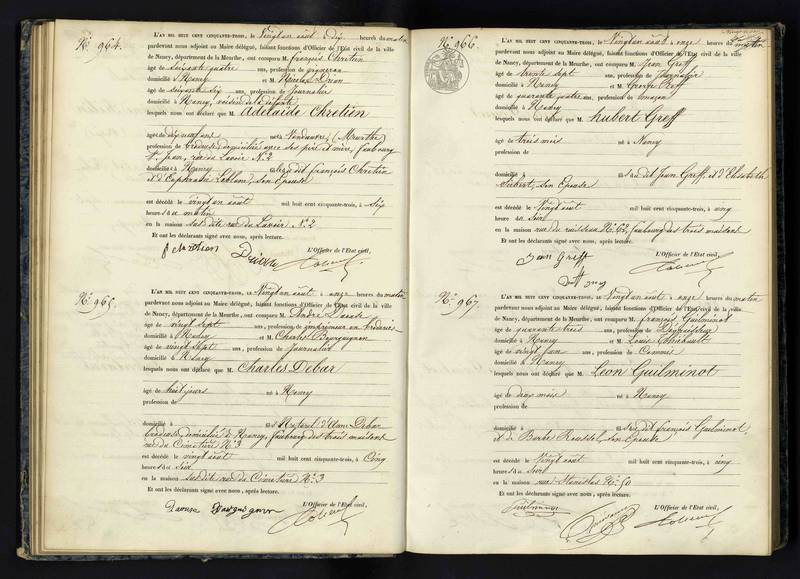 N° 964. L'AN MIL HUIT CENT CINQUANTE-TROIS, le Vingt un août à dix heures du matin
pardevant nous adjoint au Maire délégué, faisant fonctions d'Officier de l'Etat civil de la ville
de Nancy, département de la Meurthe, ont comparu M. François Chrétien
âgé de soixante quatre ans, profession de vigneron
domicilié à Nancy et M. Nicolas Drian
âgé de soixante six ans, profession de Journalier
domicilié à Nancy, voisin de la défunte
lesquels nous ont déclaré que M. Adelaïde Chrétien
âgé de dix neuf ans né à Vandœuvre, (Meurthe)
profession de brodeuse domiciliée avec ses père et mère, faubourg
St Jean, rue du Lavoir N° 2
domicilié à Nancy fille du dit François Chrétien
et d'Euphrasie Leblanc, son épouse
est décédé le vingt un août mil huit cent cinquante-trois, à Six
heures du matin
en la maison sus dite rue du Lavoir N° 2
Et ont les déclarants signé avec nous, après lecture.
L'Officier de l'Etat civil,
Chretien Drian
N° 965. L'AN MIL HUIT CENT CINQUANTE-TROIS, le Vingt un août à onze heures du matin
pardevant nous adjoint au Maire délégué, faisant fonctions d'Officier de l'Etat civil de la ville
de Nancy, département de la Meurthe, ont comparu M. André
âgé de vingt sept ans, profession de imprimeur en
domicilié à Nancy et M. Charles Bourguignon
âgé de vingt sept ans, profession de Journalier
domicilié à Nancy
lesquels nous ont déclaré que M. Charles Debar
âgé de huit jours né à Nancy
profession de
domicilié à fils Naturel d'Anne Debar
brodeuse, domiciliée à Nancy, faubourg des trois maisons
rue du Cimetière N° 3
est décédé le vingt août mil huit cent cinquante-trois, à Cinq
heures du Soir
en la maison sus dite rue du Cimetière N° 3
Et ont les déclarants signé avec nous, après lecture.
L'Officier de l'Etat civil,
N° 966. L'AN MIL HUIT CENT CINQUANTE-TROIS, le Vingt un août à onze heures du matin
pardevant nous adjoint au Maire délégué, faisant fonctions d'Officier de l'Etat civil de la ville
de Nancy, département de la Meurthe, ont comparu M. Jean Greff
âgé de trente sept ans, profession de Journalier
domicilié à Nancy et M. George
âgé de quarante quatre ans, profession de maçon
domicilié à Nancy
lesquels nous ont déclaré que M. hubert Greff
âgé de trois mois né à Nancy
profession de
domicilié à fils du dit Jean Greff, et d'Elisabeth
son Epouse
est décédé le Vingt août mil huit cent cinquante-trois, à cinq
heures du Soir
en la maison rue du ruisseau N° 62, faubourg des trois maisons
Et ont les déclarants signé avec nous, après lecture.
L'Officier de l'Etat civil,
Jean Greff
N° 967. L'AN MIL HUIT CENT CINQUANTE-TROIS, le Vingt un août à onze heures du matin
pardevant nous adjoint au Maire délégué, faisant fonctions d'Officier de l'Etat civil de la ville
de Nancy, département de la Meurthe, ont comparu M. François Guilminot
âgé de quarante trois ans, profession de
domicilié à Nancy et M. Louis Thiébault
âgé de vingt un ans, profession de Commis
domicilié à Nancy
lesquels nous ont déclaré que M. Léon Guilminot
âgé de deux mois né à Nancy
profession de
domicilié à fils du dit François Guilminot
et de Barbe Roussel, son épouse
est décédé le Vingt août mil huit cent cinquante-trois, à cinq
heures du Soir
en la maison rue Stanislas N° 50
Et ont les déclarants signé avec nous, après lecture.
L'Officier de l'Etat civil,
Guilminot